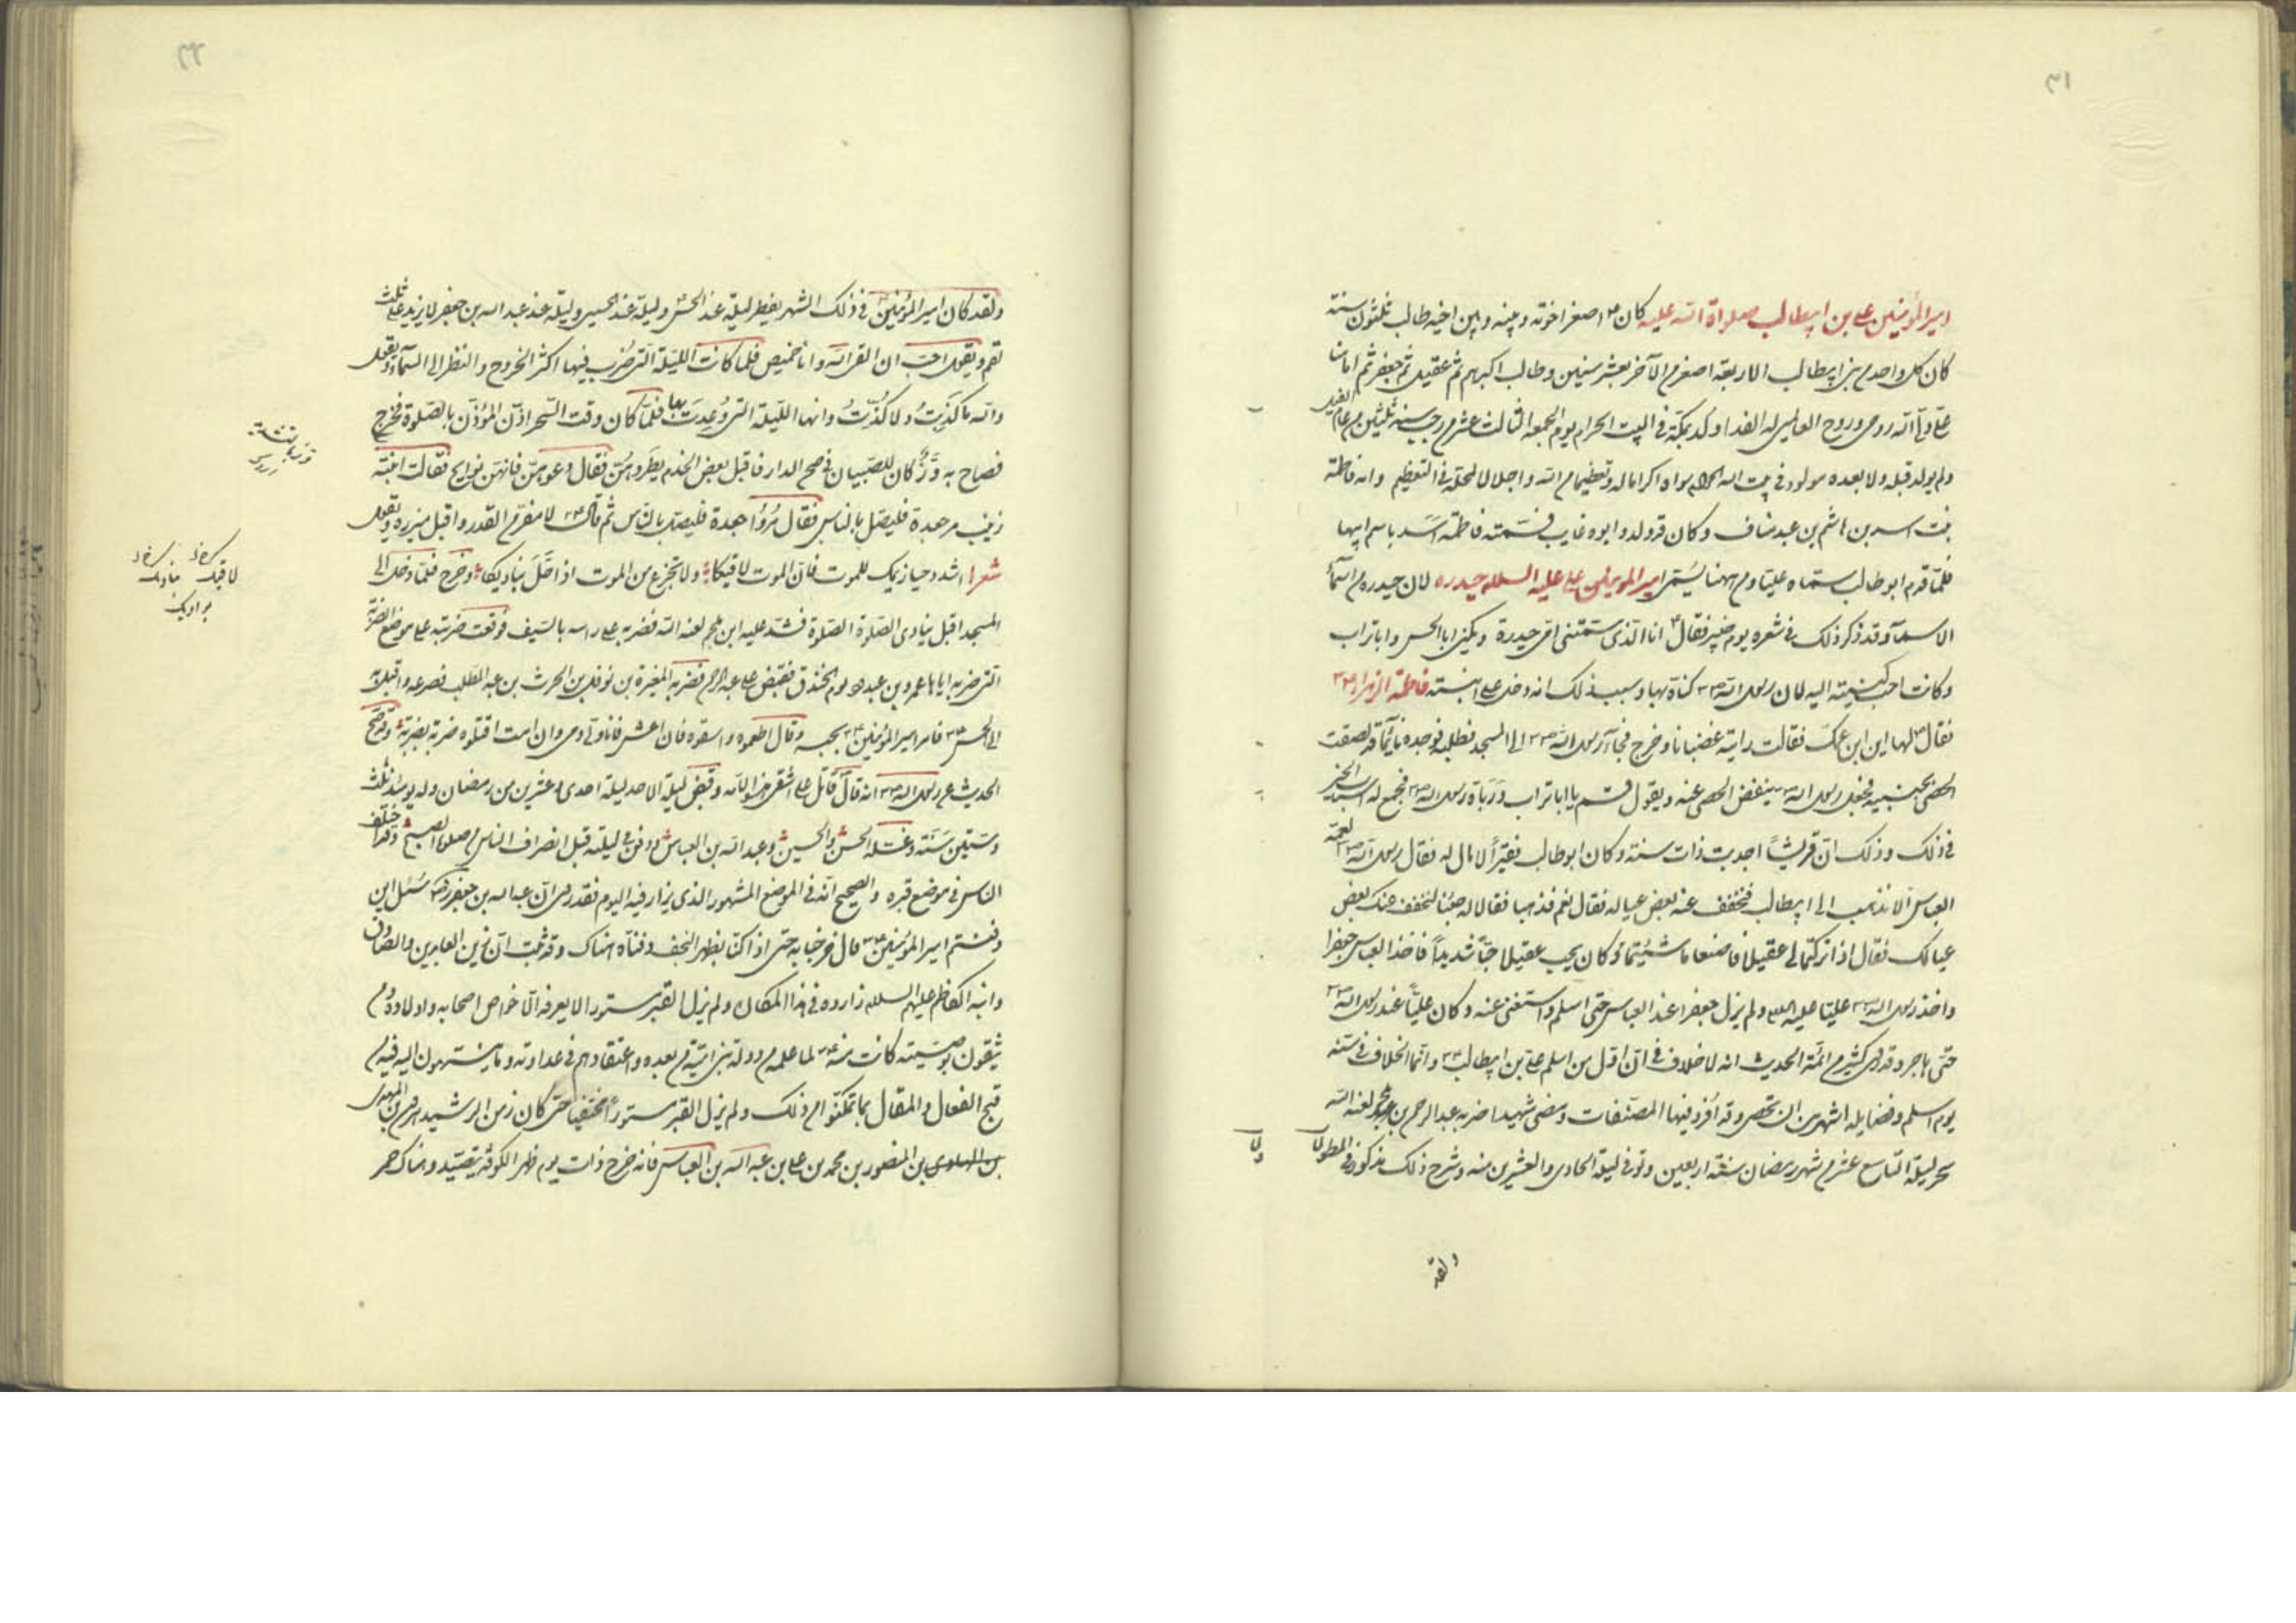 ٣١
امیر المؤمنین علی بن ابیطالب صلواة الله علیه کان ع اصغر اخوته و بینه و بین اخیه طالب ثلثون سنة
کان کل واحد من بنی ابیطالب الاربعة اصغر من الآخر بعشر سنین و طالب اکبرهم ثم عقیل ثم جعفر ثم امامنا
علی ولی الله روحی و روح العالمین له الفدا ولد بمکة فی البیت الحرام یوم الجمعه الثالث عشر من رجب سنة ثلثین من عام الفیل
ولم یولد قبله ولا بعده مولود فی بیت الله الحرام سواه اکراما له وتعظیما من الله واجلالا لمحله فی التعظیم وامه فاطمة
بنت اسد بن هاشم بن عبد مناف وکان قد ولد وابوه غایب فسمته فاطمة اسد باسم ابیها
فلما قدم ابو طالب سماه علیا ومن ههنا یسمی امیر المومنین علی علیه السلام حیدره لان حیدره من اسمآء
الاسد وقد ذکر ذلک فی شعره یوم خیبر فقال ع انا الذی سمتنی امی حیدرة ویکنی ابا الحسن وابا تراب
وکانت احب کنیته الیه لان رسول الله ص کناه بها وسبب ذلک انه دخل علی ابنته فاطمة الزهراء ع
فقال لها این ابن عمک فقالت رایته غضبانا وخرج فجاء رسول الله ص الی المسجد فطلبه فوجده نایما قد لصقت
الحصی بجنبیه فجعل رسول الله ص ینفض الحصی عنه ویقول قم یا ابا تراب وربّاه رسول الله ص فجمع له اسباب الخیر
فی ذلک وذلک ان قریشا اجدبت ذات سنة وکان ابو طالب فقیرا لا مال له فقال رسول الله ص لعمه
العباس الا نذهب الی ابیطالب فنخفف عنه بعض عیاله فقال نعم فذهبا فقالا له جئنا لنخفف عنک بعض
عیالک فقال اذا ترکتما لی عقیلا فاصنعا ما شئتما وکان یحب عقیلا حبا شدیدا فاخذ العباس جعفرا
واخذ رسول الله ص علیا علیه السلام ولم یزل جعفرا عند العباس حتی اسلم واستغنی عنه وکان علیا عند رسول الله ص
حتی هاجر وقد روی کثیر من ائمة الحدیث انه لا خلاف فی ان اول من اسلم علی بن ابیطالب ع وانما الخلاف فی سنه
یوم اسلم وفضایله اشهر من ان تحصر وقد افرد فیها المصنفات ومضی شهیدا ضربه عبد الرحمن بن ملجم لعنه الله
سحر لیلة التاسع عشر من شهر رمضان سنة اربعین وتوفی لیلة الحادی والعشرین منه وشرح ذلک مذکور فی المطولات
ولقد
٣٢
ولقد کان امیر المؤمنین ع فی ذلک الشهر یفطر لیلة عند الحسن ولیلة عند الحسین ولیلة عند عبد الله بن جعفر لا یزید علی ثلث
لقم ویقول احب ان القی الله وانا خمیص فلما کانت اللیلة التی ضرب فیها اکثر الخروج والنظر الی السمآء ویقول
والله ما کذبت ولا کذبت وانها اللیلة التی وعدت بها فلما کان وقت السحر اذن المؤذن بالصلوة فخرج
فصاح به وزّ کان للصبیان فی صحن الدار فاقبل بعض الخدم یطردهن فقال دعوهن فانهن نوایح فقالت ابنته
زینب مر جعدة فلیصل بالناس فقال مروا جعدة فلیصل بالناس ثم قال ع لا مفر من القدر واقبل میزره ویقول
شعرا اشدد حیازیمک للموت فان الموت لاقیکا ولا تجزع من الموت اذا حل بنادیکا وخرج فلما دخل الی
المسجد اقبل ینادی الصلوة الصلوة فشد علیه ابن ملجم لعنه الله فضربه علی راسه بالسیف فوقعت ضربته علی موضع الضربة
التی ضربه ایاها عمرو بن عبدود یوم الخندق فقبض علی عبد الرحمن فضربه المغیرة بن نوفل بن الحرث بن عبد المطلب فصرعه واقبل به
الی الحسن ع فامر امیر المؤمنین ع بحبسه وقال اطعموه واسقوه فان اعش فانا ولی دمی وان امت اقتلوه ضربة بضربة وقد صح
الحدیث عن رسول الله ص انه قال قاتل علی اشقی هذه الامة وقبض لیلة الاحد لیلة احدی وعشرین من رمضان وله یومئذ ثلث
وستین سنة وغسله الحسن والحسین وعبد الله بن العباس ودفن فی لیلته قبل انصراف الناس من صلوة الصبح وقد اختلف
الناس فی موضع قبره والصحیح انه فی الموضع المشهور الذی یزار فیه الیوم فقد روی ان عبد الله بن جعفر سئل این
دفنتم امیر المؤمنین ع قال خرجنا به حتی اذا کنا بظهر النجف دفناه هناک وقد ثبت ان زین العابدین والصادق
وابنه الکاظم علیهم السلام زاروه فی هذا المکان ولم یزل القبر مستورا لا یعرفه الا خواص اصحابه واولاده ومن
یثقون بوصیته کانت منه ع لما علمه من دولة بنی امیة من بعده واعتقادهم فی عداوته وما ینتهون الیه فیه من
قبح الفعال والمقال بما تمکنوا من ذلک ولم یزل القبر مستورا مختفیا حتی کان زمن الرشید هرون بن المهدی
بن الهادی بن المنصور بن محمد بن علی بن عبد الله بن العباس فانه خرج ذات یوم ظهر الکوفة یتصید وهناک حمر